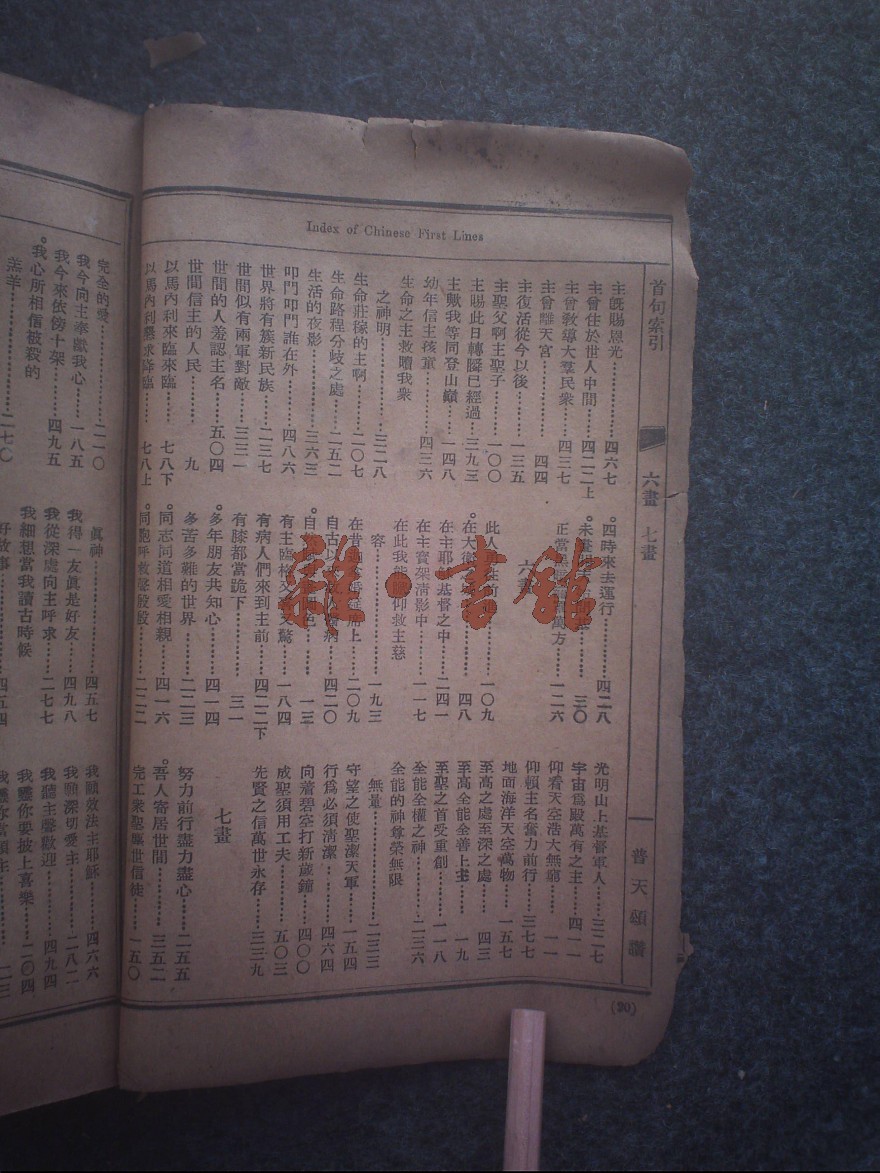 Index of Chinese First Lines
首句索引
六畫 七畫
普天頌讚
(20)
主旣賜恩光………四六七
主曾住於世人中間……四二二上
主曾敎導大羣民衆……四三七
主曾離天宮………四四
主復活從今以後………一三五
主聖父啊主聖子………一〇〇
主賜此日轉瞬已經過……三九三
主歟我等同登山巓……一四八
幼年信主孩童………四三六
生命之主救贖我衆
之神明………三二八
生命莊稼的主啊………二〇七
生命路程分歧之處……二五二
生活的夜影………三六三
叩門叩門誰在外………四八六
世界將有簇新民族……二三七
世間似有兩軍對敵……三三一
世間的人羞認主名……五〇四
世間信主的人民……九
以馬內利來臨來臨……七八下
以馬內利懇求降臨……七八上
四時來去運行………四二八
三〇
正當 萬方……一二六
六畫
此人 一〇九
在大衛 四八
在主耶 基督之中……二四一
在主寶架清影中……一一七
在此我能 仰救主慈
容………一九三
在昔 上……二〇九
自古以 病……四二〇
自 色……一三
有主臨格 又驚……一八四
有病人們來到主前……四二二下
有膝都當跪下………三一
多年朋友共知心……四一四
多苦多難的世界……二二三
同志同道相愛相親……四一六
同胞呼救聲殷殷……二二二
光明山上基督軍人……三二七
宇宙爲殿萬有之主……四一一
仰看天空浩大無窮……一一
仰賴主名奮力前行……三七七
地面海洋天空萬物……一五七
至高之處至深之處……四三
至高全能全善上主……一九
至聖之首受重創………一一八
全能全權之神………二三六
全能的神尊榮無限
無量………二三三
守望之使聖潔天軍……一五四
行爲必須淸潔………四六四
向着碧空打新歲鐘……四〇〇
成聖須用工夫………五〇三
先賢之信萬世永存……三三九
七畫
努力前行盡力盡心……二五五
吾人寄居世間………三五二
完工衆聖畢世信徒……一五〇
完全的愛………二一〇
我今向主奉獻我心……一八五
我今來依傍十架………四九五
我心所相信被殺的
羔羊………二七〇
眞神………四五七
我得一友眞是好友……四九八
我從深處向主呼求……二七七
我細想當我讀古時候
四五四
我願效法主耶穌……四六六
我願深切愛主………二八二
我聽主聲歡迎………四九四
我靈你要披上喜樂……二〇四